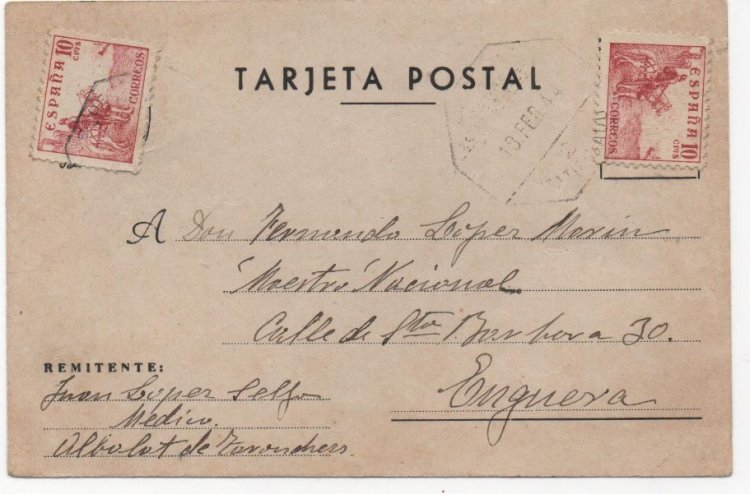 ESPAÑA 10 CTS
CORREOS
TARJETA POSTAL
18 FEB 4
ESPAÑA 10 CTS
CORREOS
A Don Fernando Lopez Marin
"Maestro" Nacional
Calle de Sta Barbara 30.
Enguera
REMITENTE:
Juan Lopez
Medico
Albalat de Taronchers